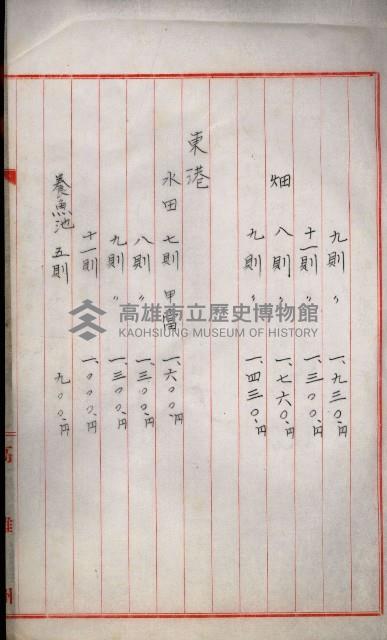 九則 〃 一、九三〇、円
十一則 〃 一、三〇〇、円
畑 八則 〃 一、七六〇、円
九則 〃 一、四三〇、円
東港
水田 七則 甲當 一、六〇〇、円
八則 〃 一、三〇〇、円
九則 〃 一、三〇〇、円
十一則 一、〇〇〇、円
養魚池 五則 九〇〇、円
高雄州
高雄市立歷史博物館
KAOHSIUNG MUSEUM OF HISTORY